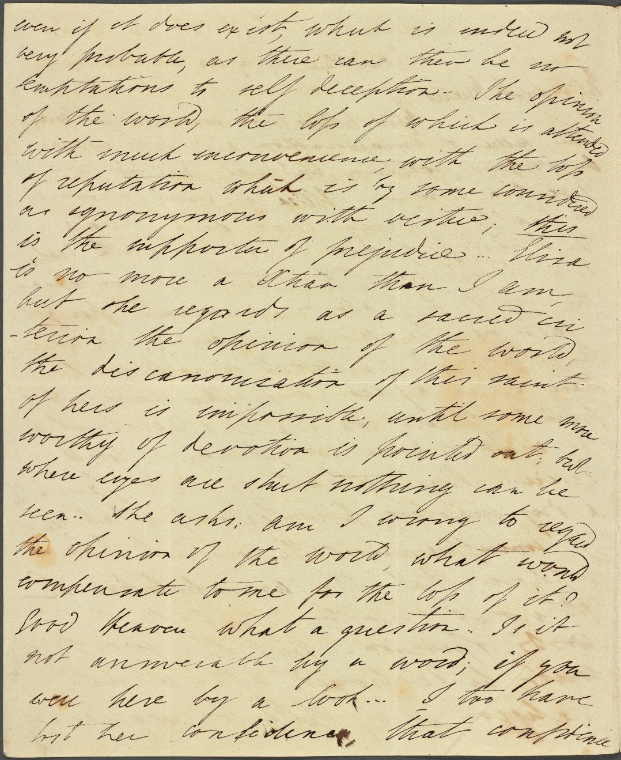 even if it does exist, which is indeed not
very probable, as there can then be no
temptations to self deception. The opinion
of the world, the loss of which is attended
with much inconvenience, with the loss
of reputation which is by some considered
as synonymous with virtue, this
is the supporter of prejudice .. Eliza
is no more a Xtian than I am,
but she regards as a sacred cri
-terion the opinion of the world,
the discanonization of this saint
of hers is impossible, until some more
worthy of devotion is pointed out; but
where eyes are shut nothing can be
seen .. She asks; am I wrong to regard
the opinion of the world, what would
compensate to me for the loss of it?
Good Heaven what a question. Is it
not answerable by a word; if you
were here by a look ... I too have
lost her confidence, that confidence